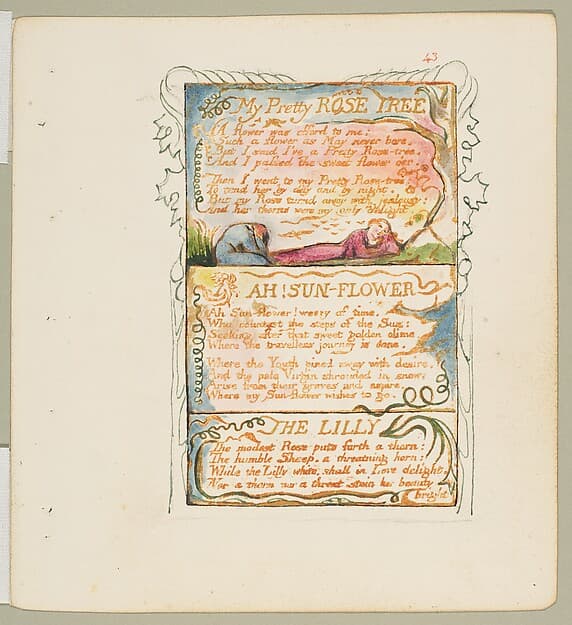 43
My Pretty ROSE TREE
A flower was offerd to me:
Such a flower as May never bore.
But I said I've a Pretty Rose-tree,
And I passed the sweet flower o'er.
Then I went to my Pretty Rose-tree:
To tend her by day and by night.
But my Rose turnd away with jealousy:
And her thorns were my only delight.
AH! SUN-FLOWER
Ah Sun-flower! weary of time.
Who countest the steps of the Sun:
Seeking after that sweet golden clime
Where the travellers journey is done.
Where the Youth pined away with desire,
And the pale Virgin shrouded in snow:
Arise from their graves and aspire,
Where my Sun-flower wishes to go.
THE LILLY
The modest Rose puts forth a thorn:
The humble Sheep, a threatning horn:
While the Lilly white, shall in Love delight,
Nor a thorn nor a threat stain her beauty
bright